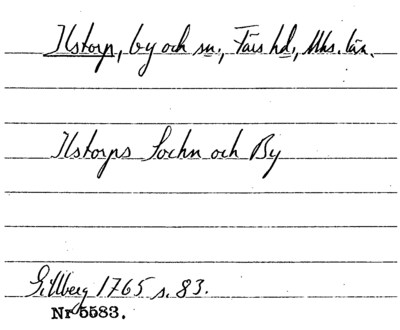 Ilstorp, by och sn, Färs hd, Mhs. län.
Ilstorps Sochn och By
Gillberg 1765 s. 83.
Nr 5583.